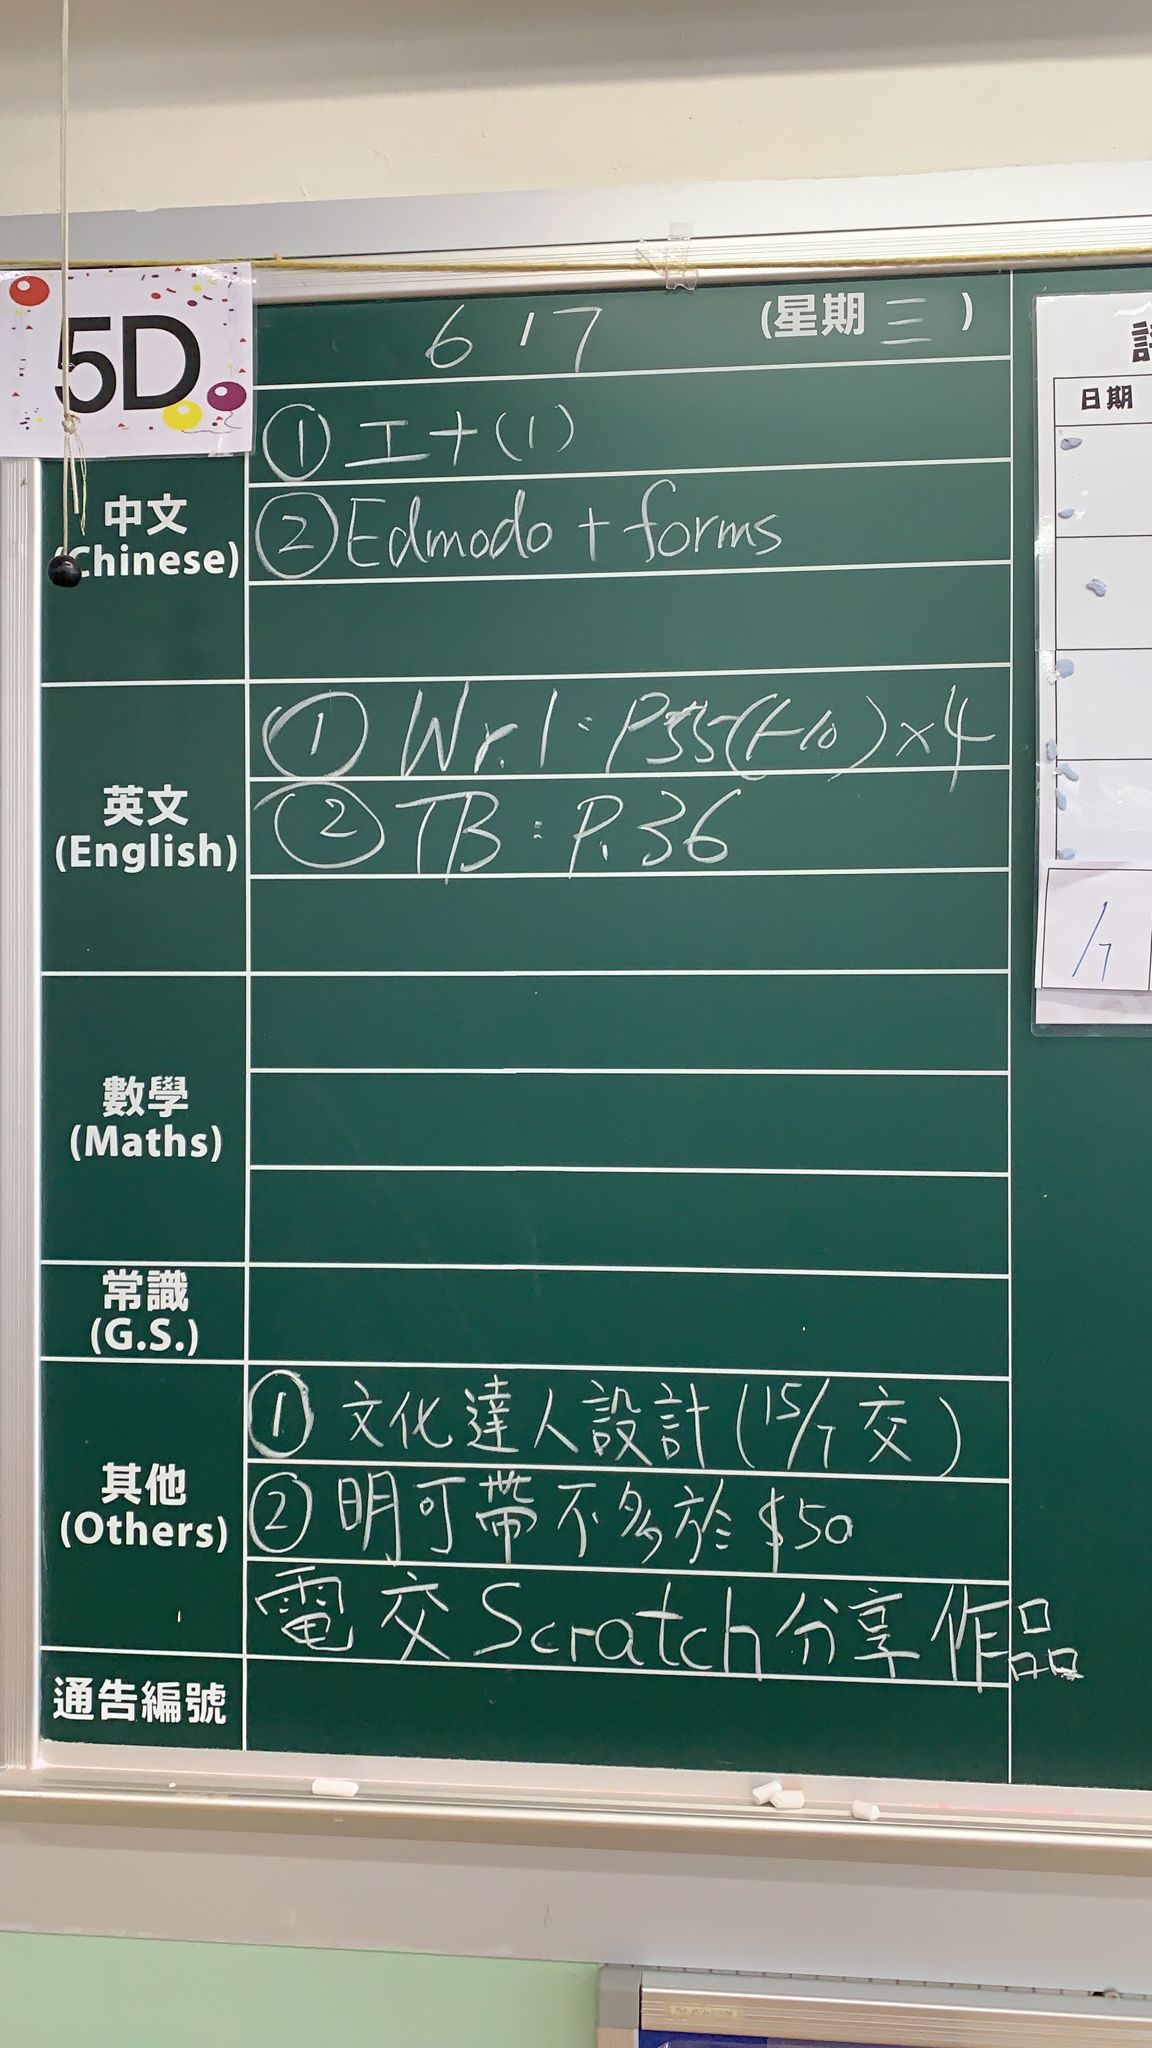 5D
6 / 7 (星期三)
中文
(Chinese)
① 工十(1)
② Edmodo + forms
英文
(English)
① Wr.1: P35(1-10)×4
② TB: P.36
數學
(Maths)
常識
(G.S.)
其他
(Others)
① 文化達人設計(15/7交)
② 明可帶不多於$50
電交Scratch分享作品
通告編號
日期
1/7